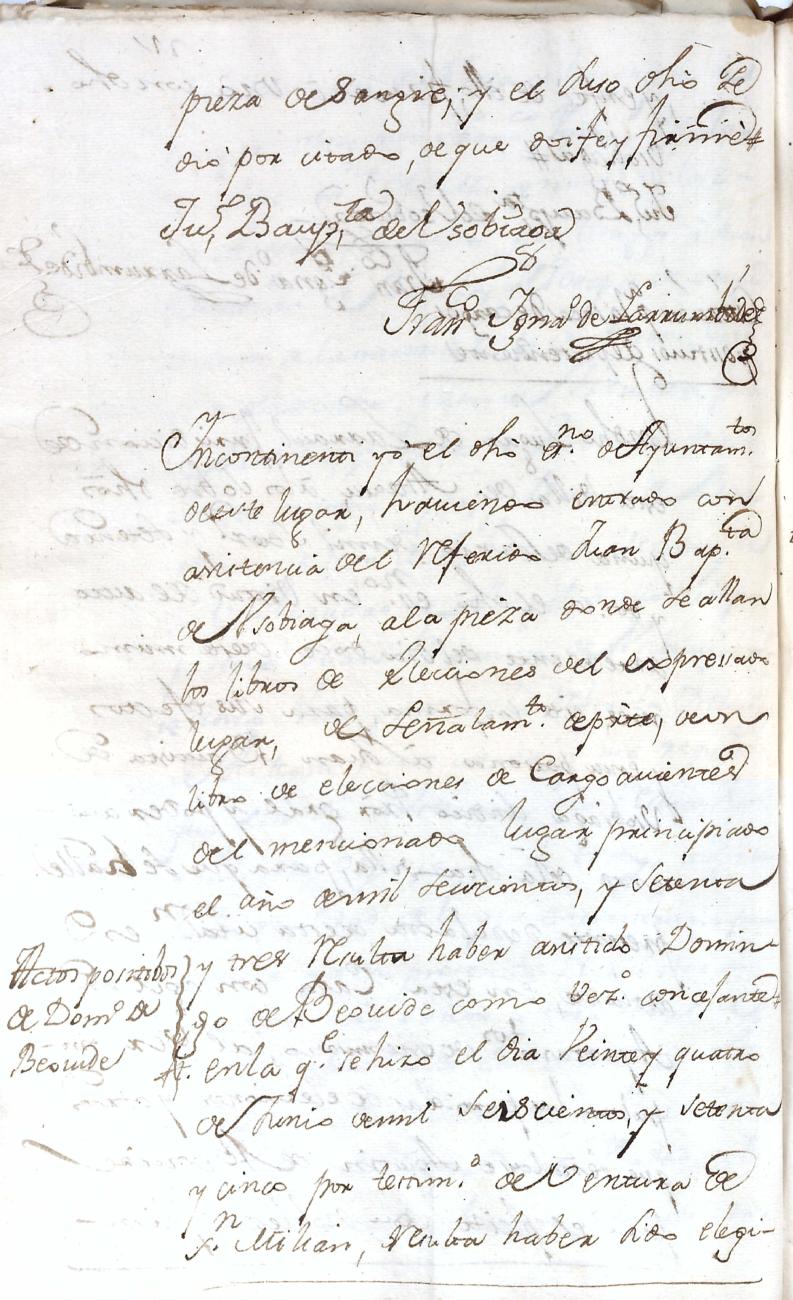 pieza de Sangre, y el suso dho se
dió por citado, de que doi fe y firmé
Juⁿ, Baupᵗᵃ de Ysobiaga
Franᶜᵒ Ignᵒ de Larrumbide
Yncontinenti yó el dho esⁿᵒ de Ayuntamᵗᵒ
de este lugar, haviendo entrado con
asistencia del referido Juan Bapᵗᵃ
de Ysobiaga, a la pieza donde se allan
los libros de elecciones del expresado
lugar, de señalamᵗᵒ de pᵗᵉ, de un
libro de elecciones de Cargoavientes
del mencionado lugar principiado
el año de mil seiscientos, y setenta
Actos positibos
de Domᵒ de
Beovide
y tres resulta haber asistido Domin-
go de Beovide como vezᵒ concejante
en la qᵉ se hizo el dia Veinte y quatro
de Junio de mil seiscientos, y setenta
y cinco por testimᵒ de Ventura de
Sⁿ Millan, resulta haber sido elegi-